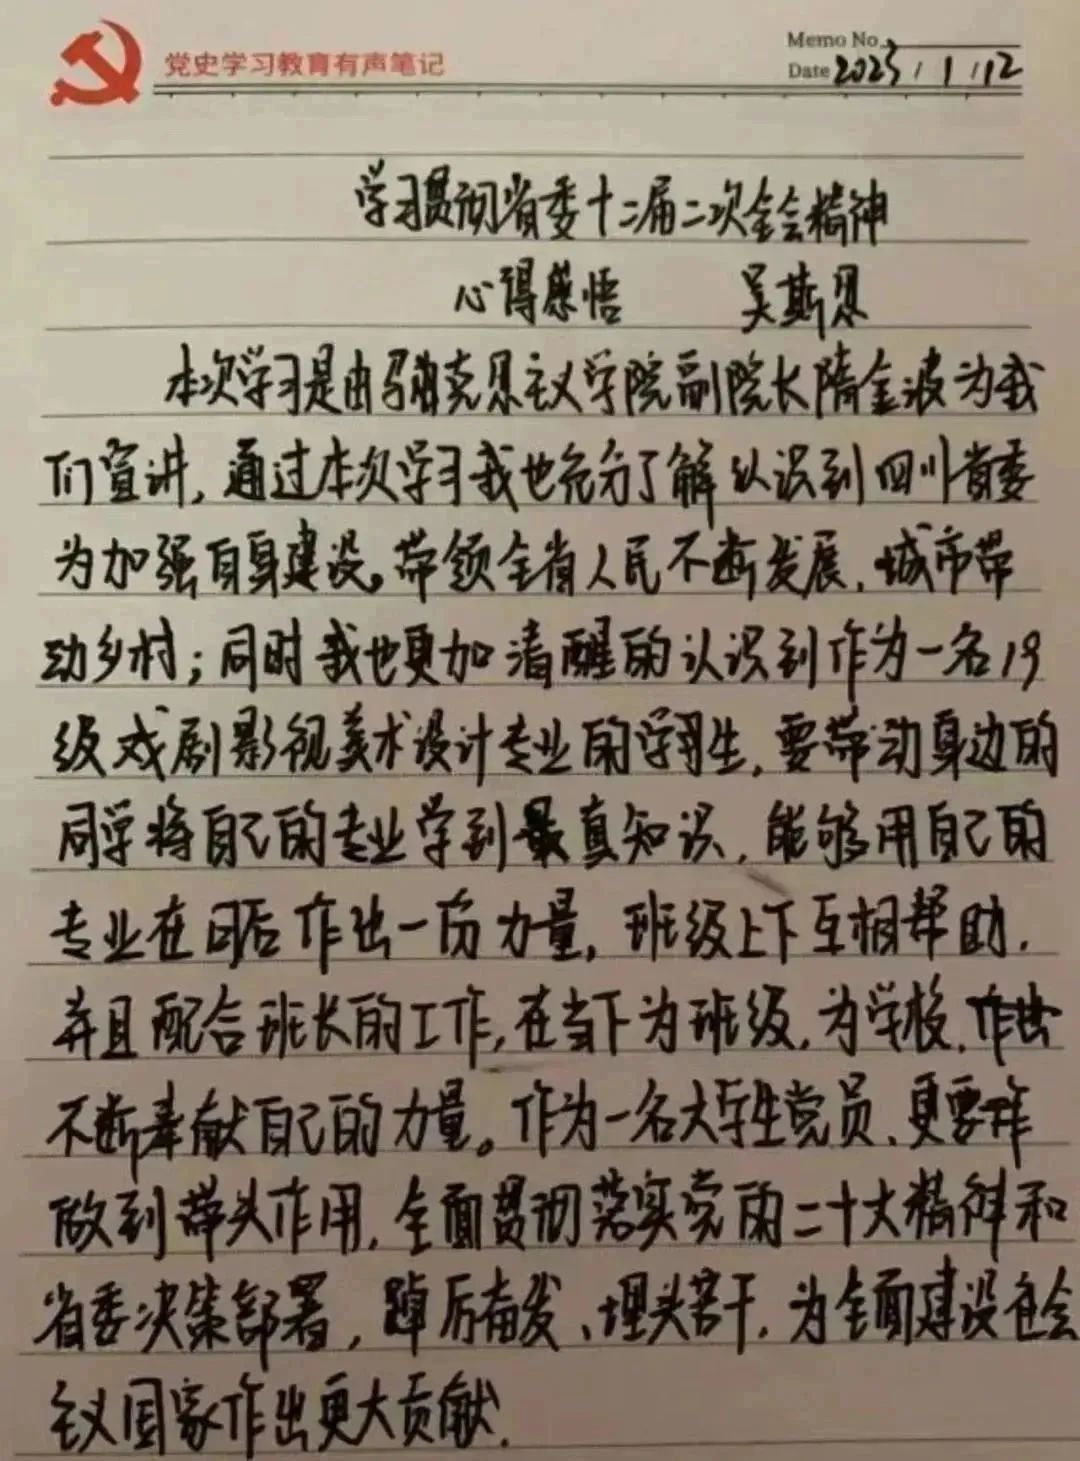 党史学习教育有声笔记
Memo No.
Date 2023/1/12
学习贯彻省委十二届二次全会精神
心得感悟 吴斯恩
本次学习是由马克思主义学院副院长隋金波为我
们宣讲,通过本次学习我也充分了解认识到四川省委
为加强自身建设。带领全省人民不断发展,城市带
动乡村;同时我也更加清醒的认识到作为一名19
级戏剧影视美术设计专业的学习生,要带动身边的
同学将自己的专业学到最真知识,能够用自己的
专业在日后作出一份力量,班级上下互相帮助,
并且配合班长的工作,在当下为班级,为学校,作出
不断奉献自己的力量。作为一名大学生党员、更要作
做到带头作用,全面贯彻落实党的二十大精神和
省委决策部署,踔厉奋发、埋头苦干,为全面建设社会
主义国家作出更大贡献.